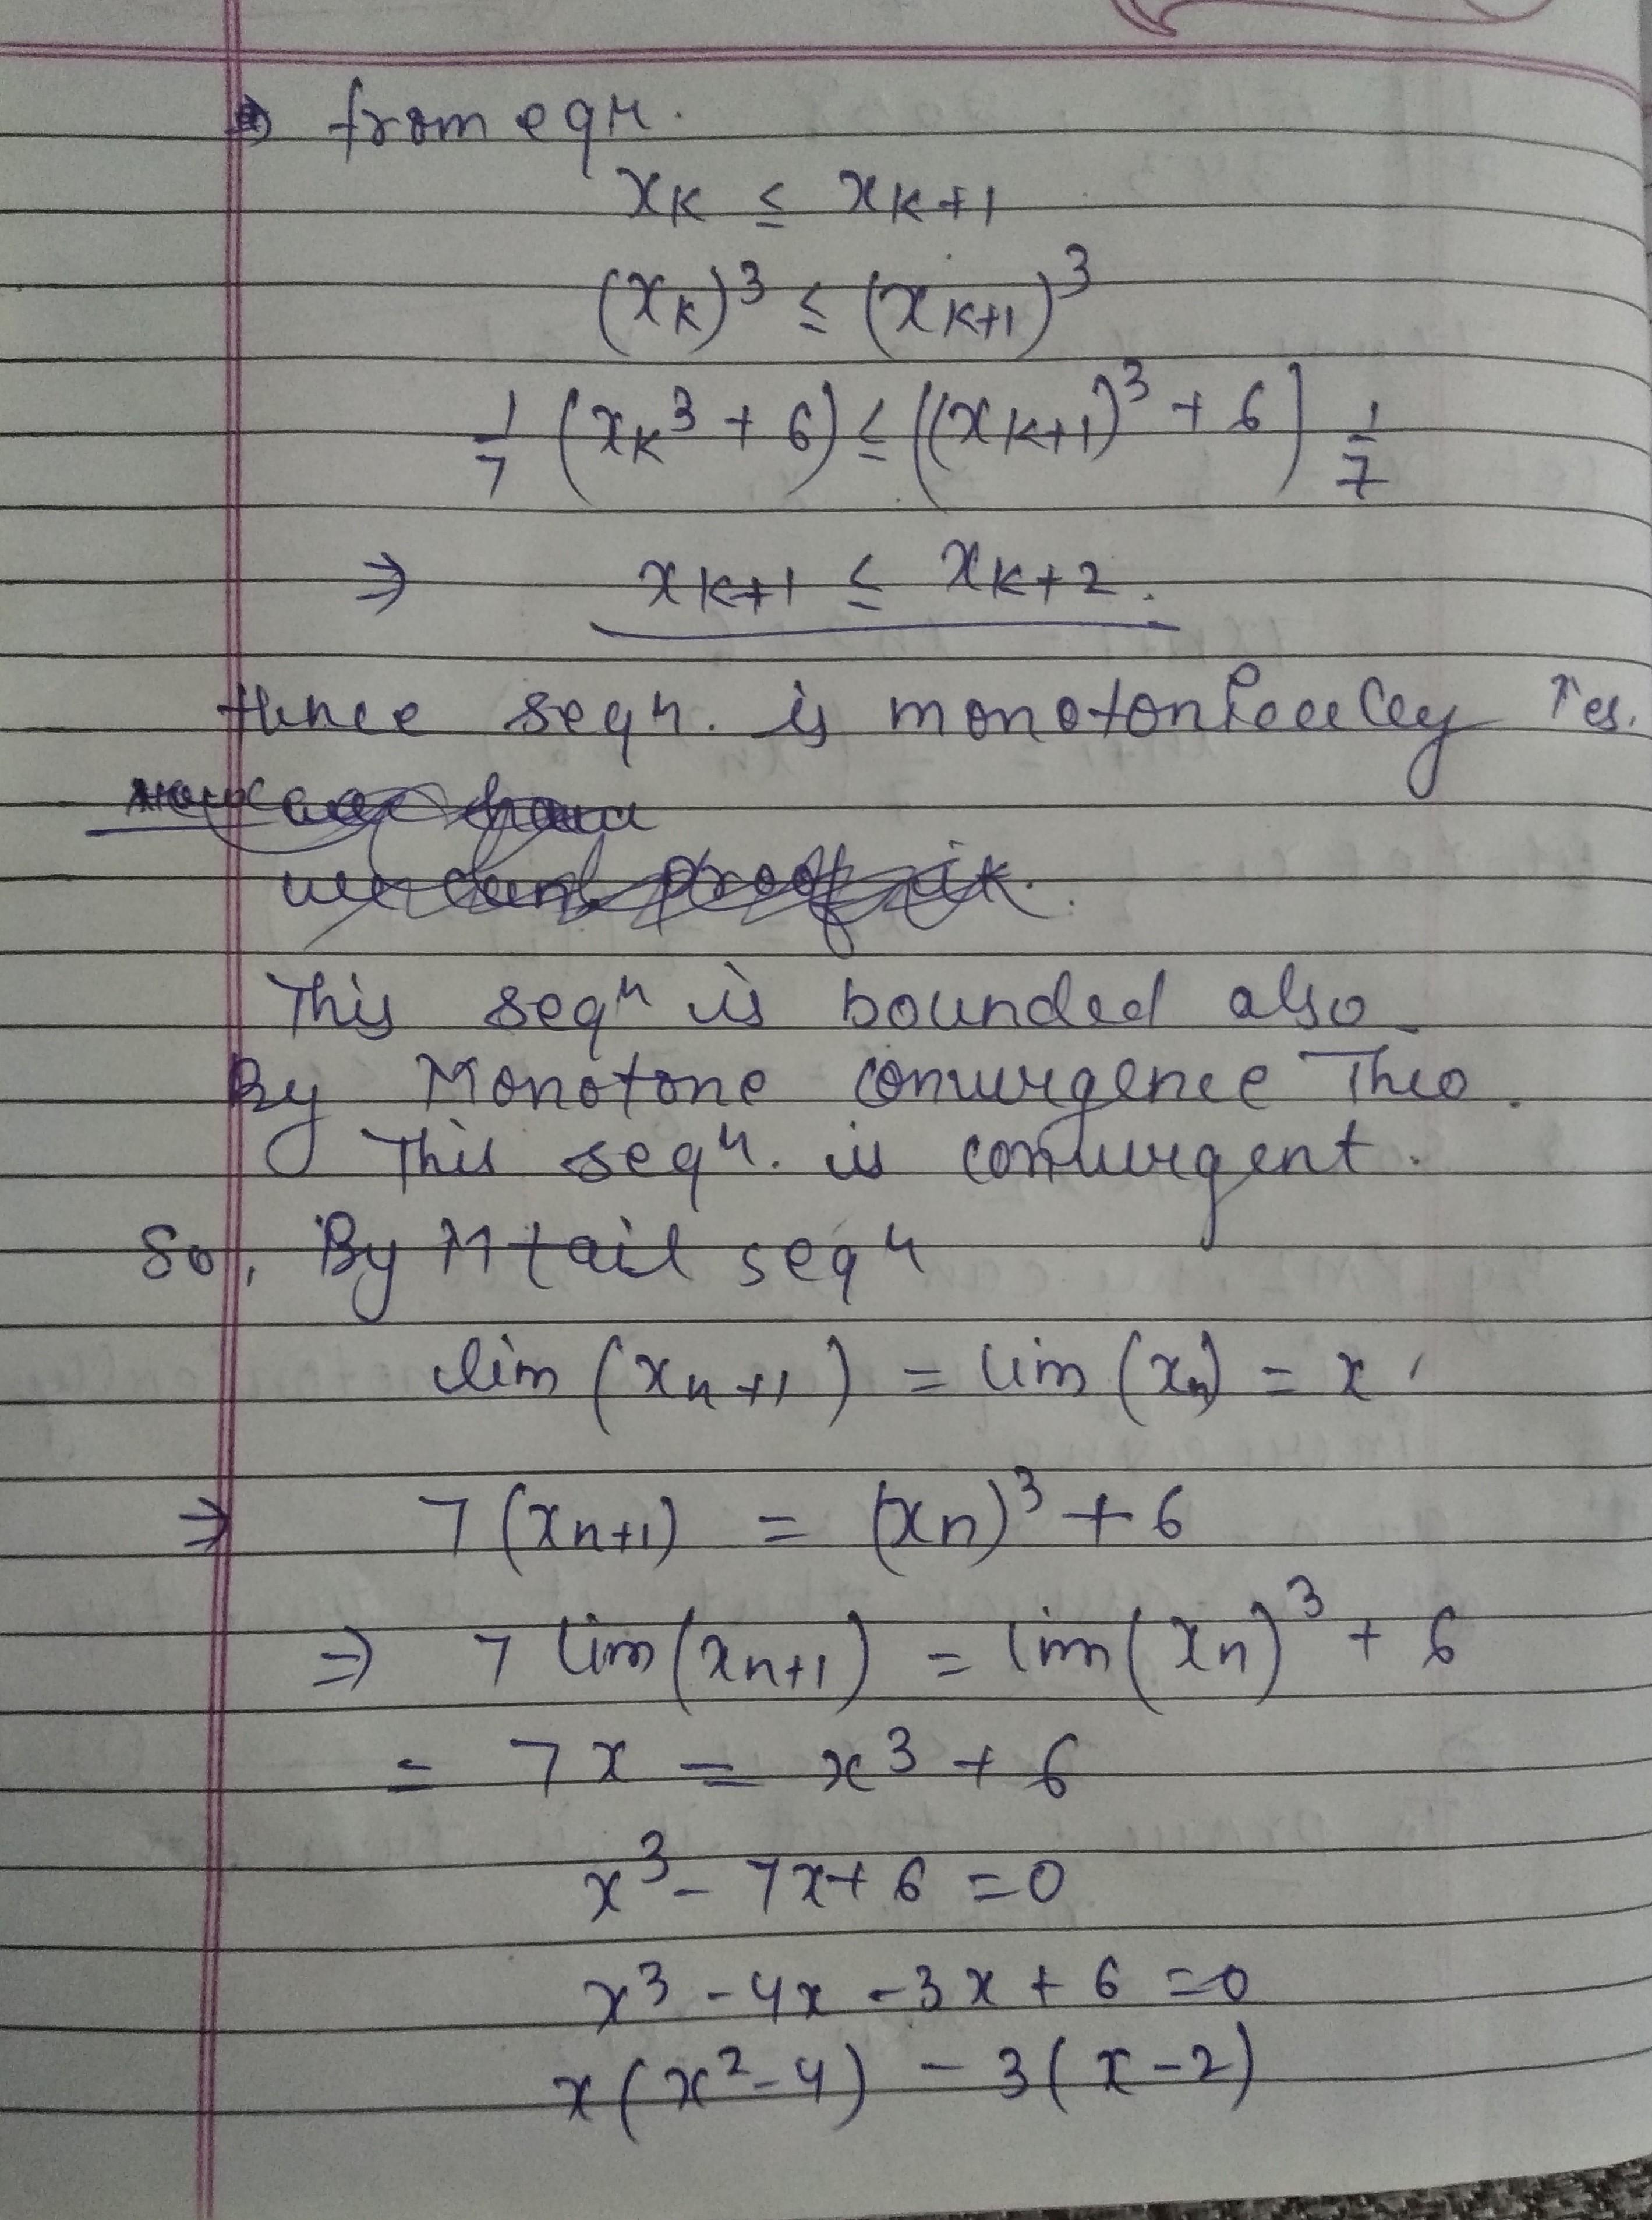 ⇒ from eqn.
xk ≤ xk+1
(xk)³ ≤ (xk+1)³
1/7 (xk³ + 6) ≤ ((xk+1)³ + 6) 1/7
⇒ xk+1 ≤ xk+2.
Hence seqn. is monotonically ↑es.
This seqn is bounded also
By Monotone convergence Theo.
This seqn. is convergent.
So, By M tail seqn
lim (xn+1) = lim (xn) = x
⇒ 7(xn+1) = (xn)³ + 6
⇒ 7 lim(xn+1) = lim(xn)³ + 6
= 7x = x³ + 6
x³ - 7x + 6 = 0
x³ - 4x - 3x + 6 = 0
x(x² - 4) - 3(x - 2)